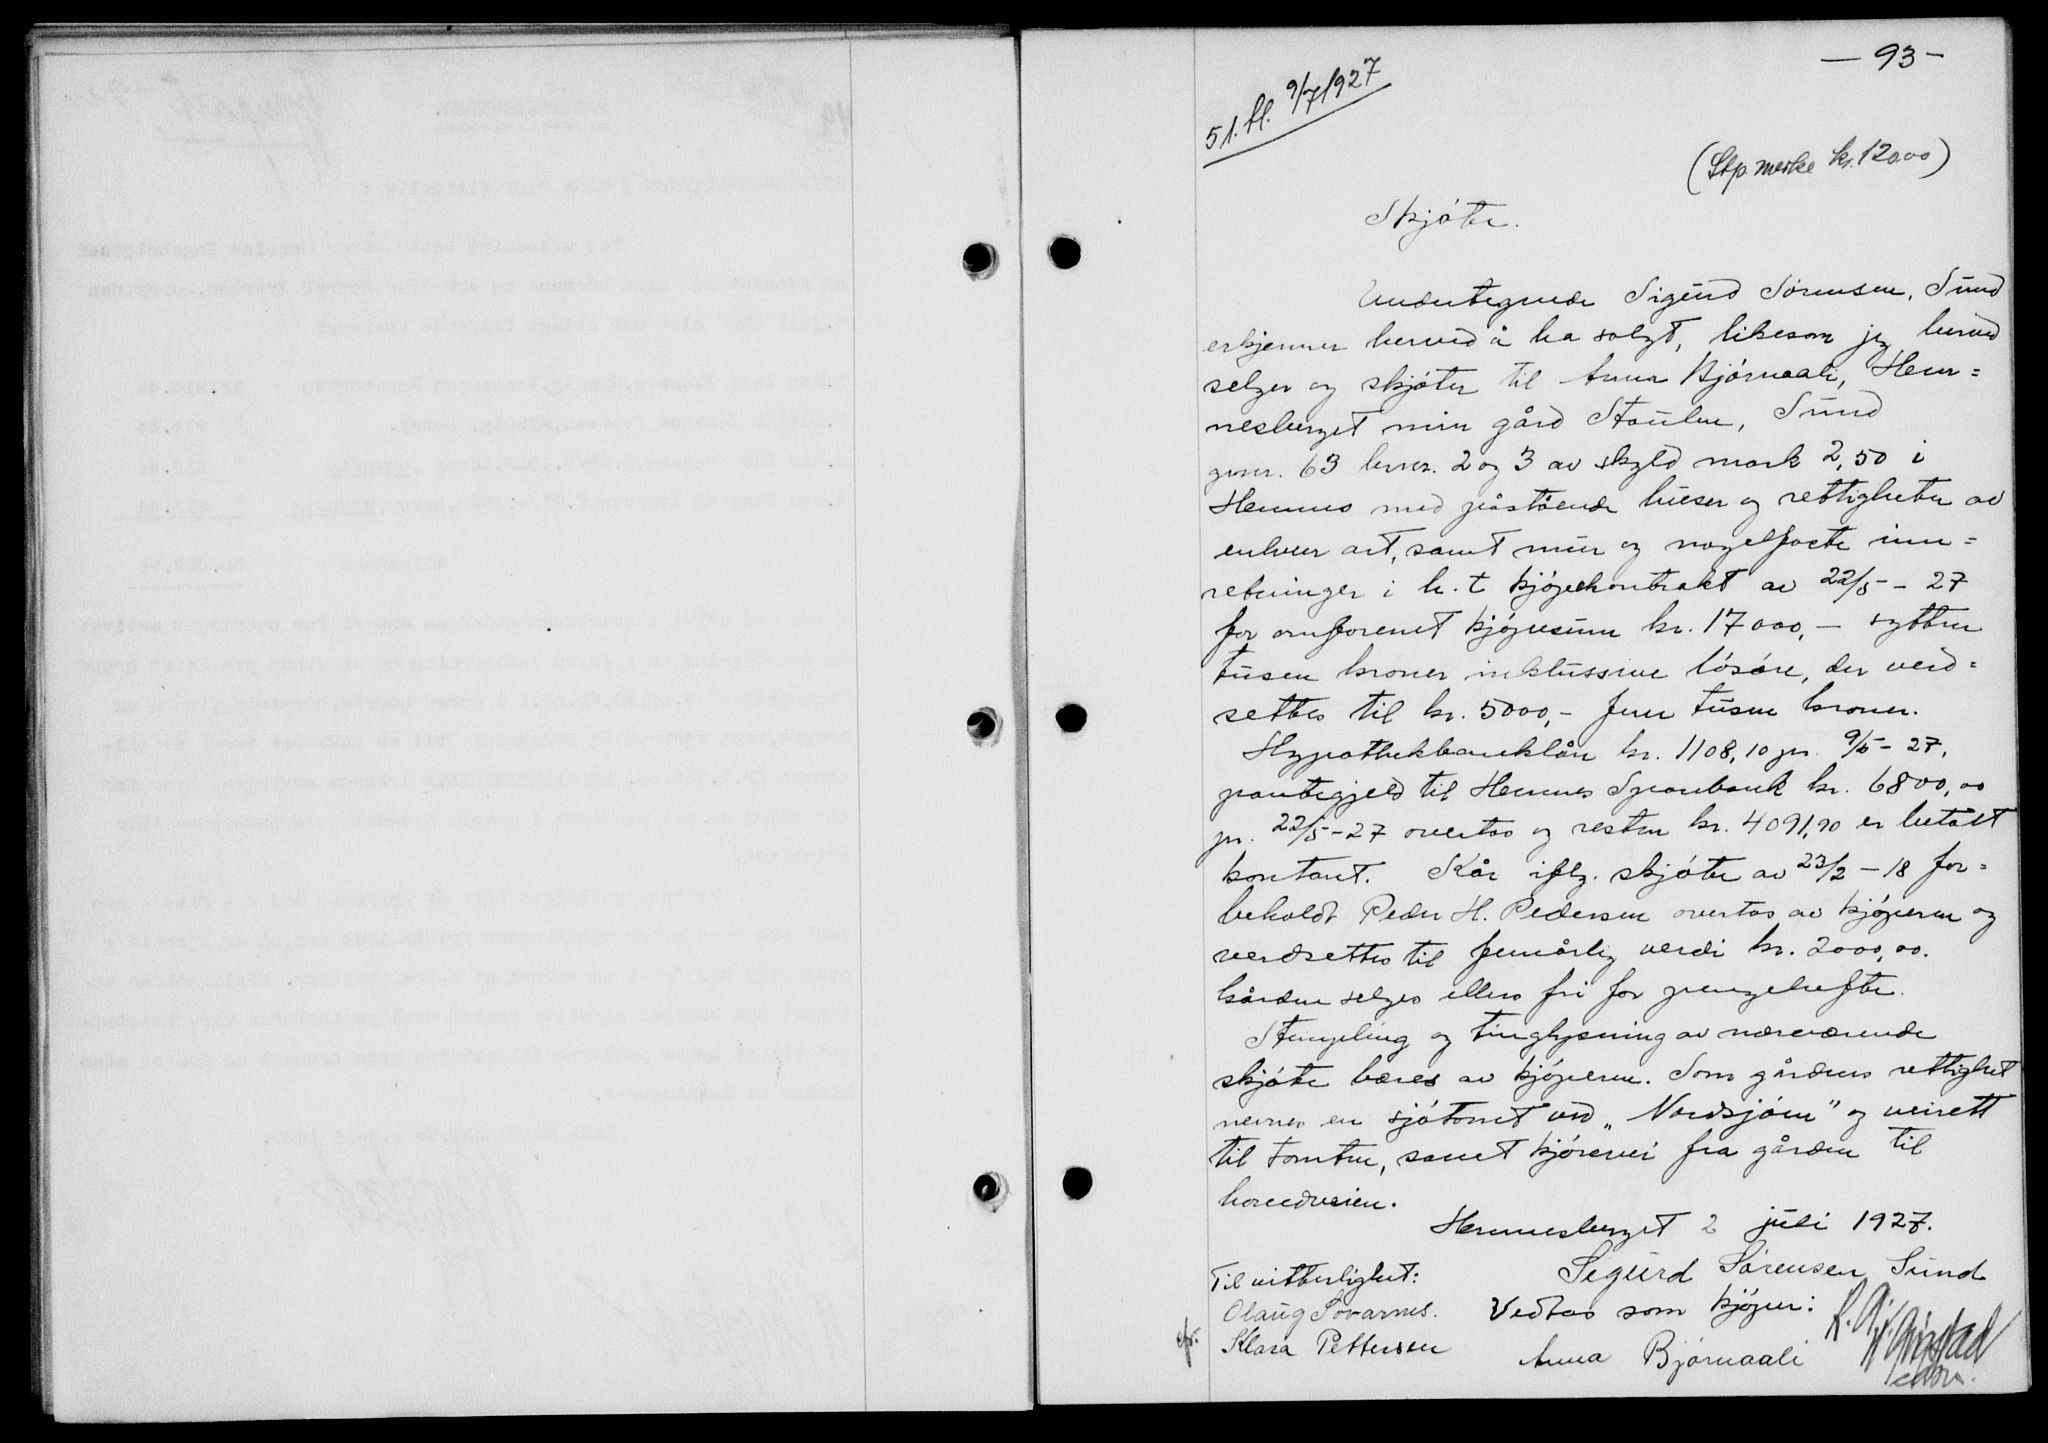 — 93 —
51. bl. 9/7 1927
(Stp. merke kr. 120.00)
Skjøte.
Undertegnede Sigurd Sørensen, Sund
erkjenner herved å ha solgt, likesom jeg herved
selger og skjøter til Anna Bjørnaali, Hem=
nesberget min gård Staulen, Sund
gnr. 63 brnr. 2 og 3 av skyld mark 2,50 i
Hemnes med påstående huser og rettigheter av
enhver art, samt mur og nagelfaste inn=
retninger i h. t kjøpekontrakt av 22/5 - 27
for omforenet kjøpesum kr. 17000,- sytten
tusen kroner inklussive løsøre, der verd=
settes til kr. 5000,- fem tusen kroner.
Hypothekbanklån kr. 1108,10 pr. 9/5 - 27,
pantegjeld til Hemnes Sparebank kr. 6800,00
pr. 22/5 - 27 overtas og resten kr. 4091,90 er betalt
kontant. Kår iflg. skjøte av 23/2 - 18 for=
beholdt Peder H. Pedersen overtas av kjøperen og
verdsettes til femårlig verdi kr. 2000,00.
Gården selges ellers fri for pengehefte.
Stempling og tinglysning av nærværende
skjøte bæres av kjøperen. Som gårdens rettighet
nevnes en sjøtomt ved „Nordsjøen" og veirett
til tomten, samt kjørevei fra gården til
hovedveien.
Hemnesberget 2 juli 1927.
Sigurd Sørensen Sund
Til vitterlighet:
Olaug Tovarnes.
Vedtas som kjøper:
Klara Pettersen
Anna Bjørnaali